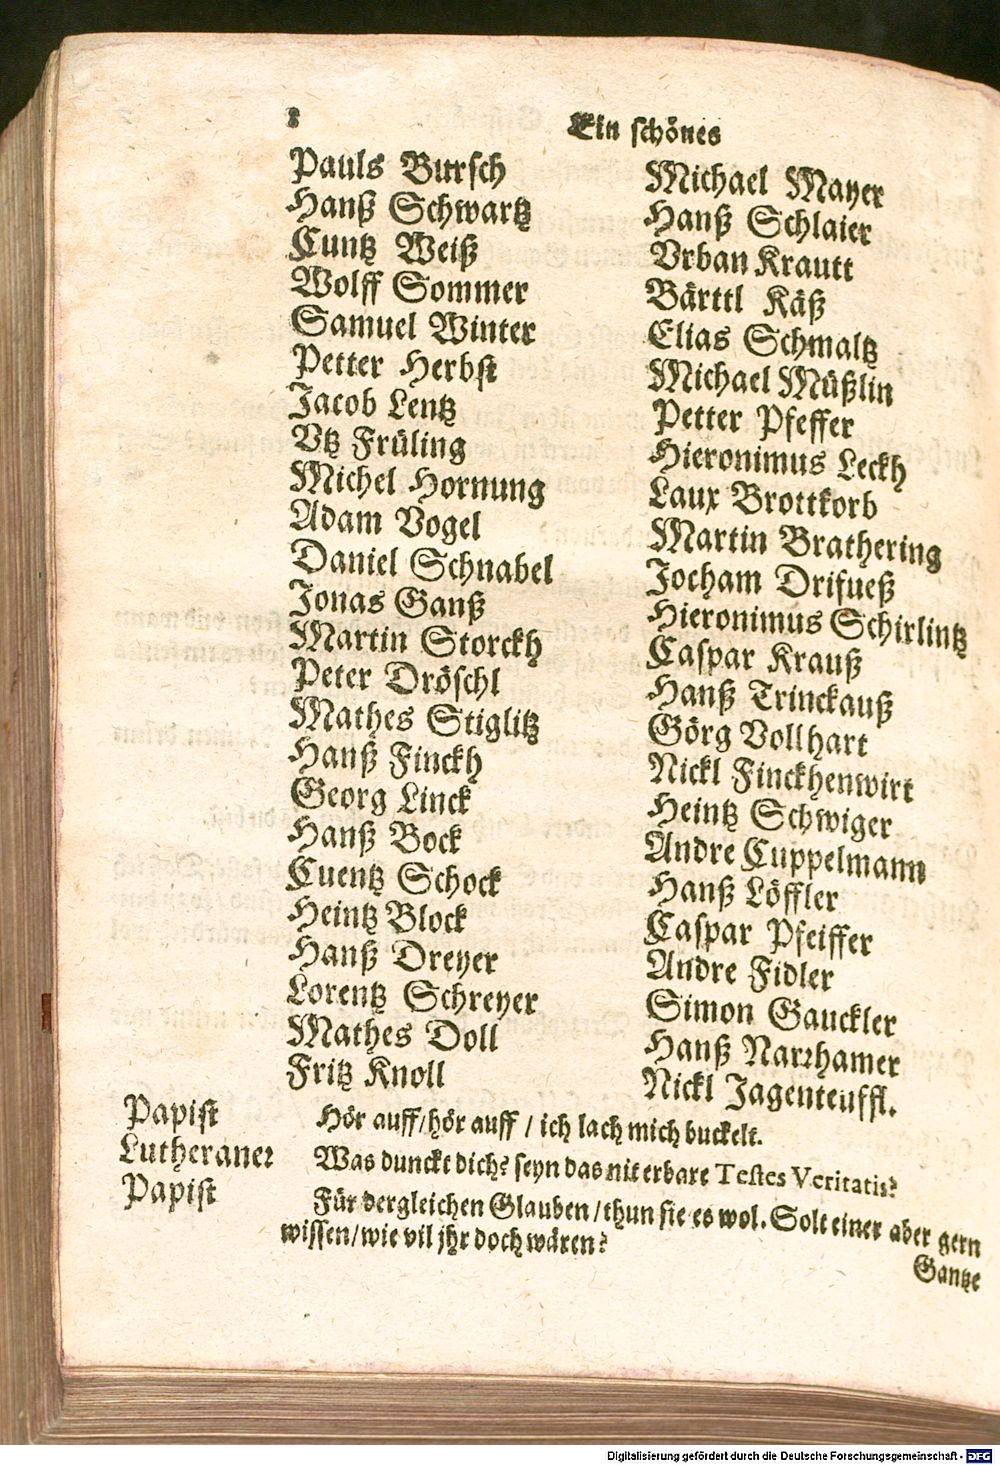 8
Ein schönes
Pauls Bursch
Hanß Schwartz
Cuntz Weiß
Wolff Sommer
Samuel Winter
Petter Herbst
Jacob Lentz
Vtz Früling
Michel Hornung
Adam Vogel
Daniel Schnabel
Jonas Ganß
Martin Storckh
Peter Dröschl
Mathes Stiglitz
Hanß Finckh
Georg Linck
Hanß Bock
Cuentz Schock
Heintz Block
Hanß Dreyer
Lorentz Schreyer
Mathes Doll
Fritz Knoll
Michael Mayer
Hanß Schlaier
Vrban Krautt
Bärttl Käß
Elias Schmaltz
Michael Müßlin
Petter Pfeffer
Hieronimus Leckh
Laux Brottkorb
Martin Brathering
Jocham Drifueß
Hieronimus Schirlintz
Caspar Krauß
Hanß Trinckauß
Görg Vollhart
Nickl Finckhenwirt
Heintz Schwiger
Andre Cuppelmann
Hanß Löffler
Caspar Pfeiffer
Andre Fidler
Simon Gauckler
Hanß Narrhamer
Nickl Jagenteuffl.
Papist Hör auff/hör auff / ich lach mich buckelt.
Lutheraner Was dunckt dich? seyn das nit erbare Testes Veritatis?
Papist Für dergleichen Glauben/thun sie es wol. Solt einer aber gern
wissen/wie vil jhr doch wären?
Gantze
Digitalisierung gefördert durch die Deutsche Forschungsgemeinschaft - DFG